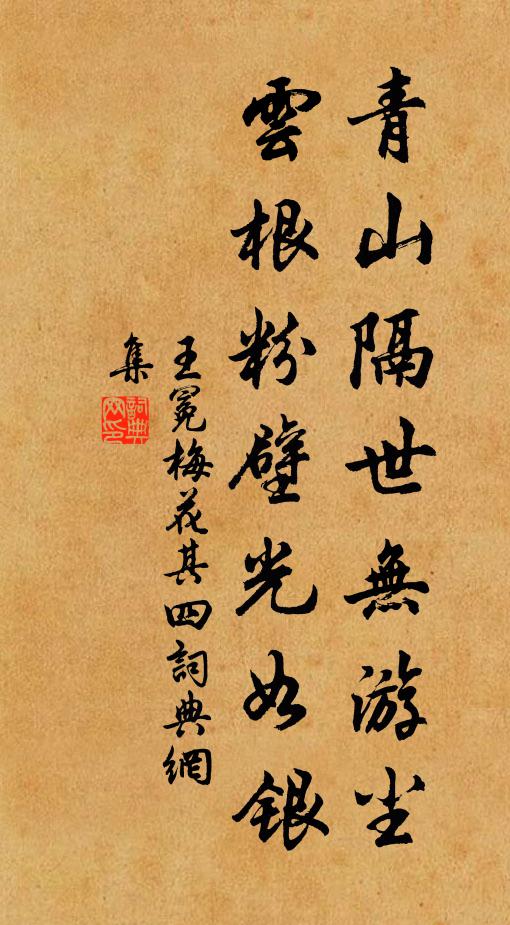 青山隔世無游尘
雲根粉壁光如銀
王冕梅花其四詞典網
集
詞典網印